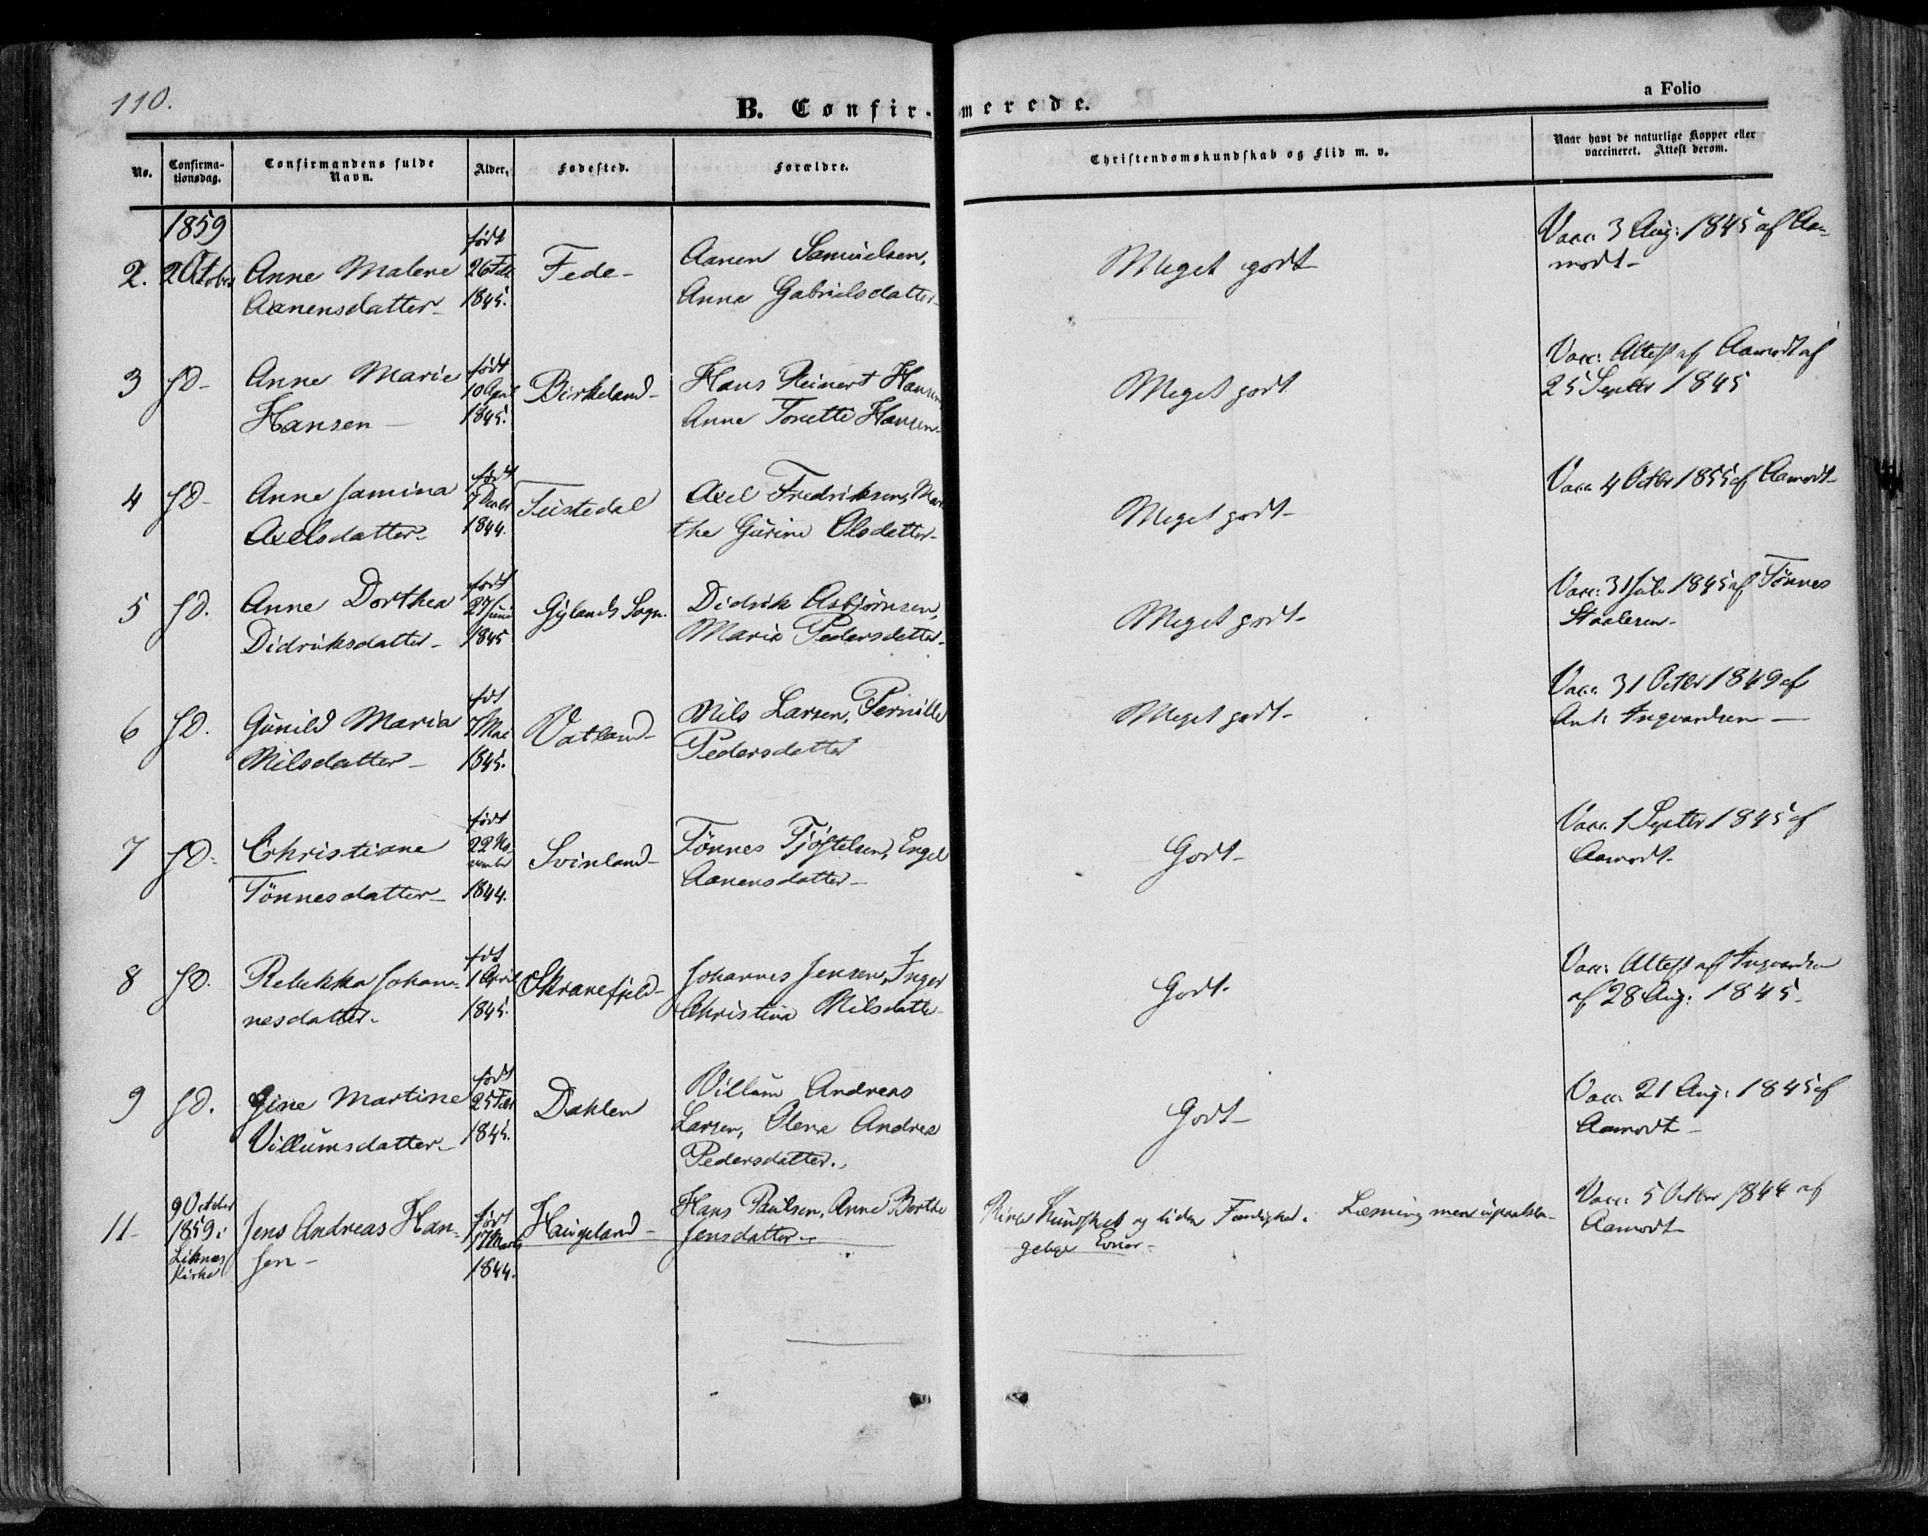 110.
B. Confirmerede.
a Folio
No.
Confirma-
tionsdag.
Confirmandens fulde
Navn.
Alder.
Fødested.
Forældre.
Christendomskundskab og Flid m. v.
Naar havt de naturlige Kopper eller
vaccineret. Attest derom.
1859
2. 2 October Anne Malene født 26 Febr Fede- Aanen Samuelsen, Meget godt Vacc: 3 Aug: 1845 af Aa-
Aanensdatter- 1845. Anne Gabrielsdatter- modt-
3 JD- Anne Marie født 10 April Birkeland- Hans Reinert Hansen, Meget godt Vacc: Attest af Aamodt af
Hansen- 1845. Anne Torette Hansen- 25 Septbr 1845
4 JD- Anne Jamina født 7 Decbr Tistedal Axel Fredriksen, Mar- Meget godt- Vacc. 4 Octbr 1855 af Aamodt-
Axelsdatter- 1844. the Gurine Olsdatter-
5 JD. Anne Dorthea født 27 Juni Gylands Sogn. Didrik Asbjørnsen, Meget godt- Vacc: 31 Juli 1845 af Tönnes
Didriksdatter- 1845 Maria Pedersdatter- Staalesen-
6 JD. Gunild Maria fdt 7 Mai Vatland- Nils Larsen, Pernille Meget godt- Vacc. 31 Octbr 1849 af
Nilsdatter- 1845. Pedersdatter Ant: Ingvardsen-
7 JD- Christiane født 22 No- Svinland- Tönnes Tjøstelsen, Engel Godt- Vacc. 1 Septbr 1845 af
vember
Tönnesdatter- 1844. Aanensdatter- Aamodt-
8 JD. Rebekka Johan- fdt 1 April Skranefjeld- Johannes Jensen, Inger Godt- Vacc: Attest af Ingvardsen
nesdatter- 1845. Christina Nilsdatter- af 28 Aug: 1845-
9 JD. Gine Martine født 25 Febr Dahlen Villum Andreas Godt- Vacc: 21 Aug: 1845 af
Villumsdatter- 1845. Larsen, Olene Andrea Aamodt-
Pedersdatter.
11- 9 October 1859 i Jens Andreas Han- født 17 Marts Haugeland- Hans Paulsen, Anne Berthe Kundskab og liden Færdighed i Læsning men upaakla- Vacc: 5 Octbr 1844 af
Liknæs Kirke sen- 1844. Jensdatter- gelige Evner- Aamodt-